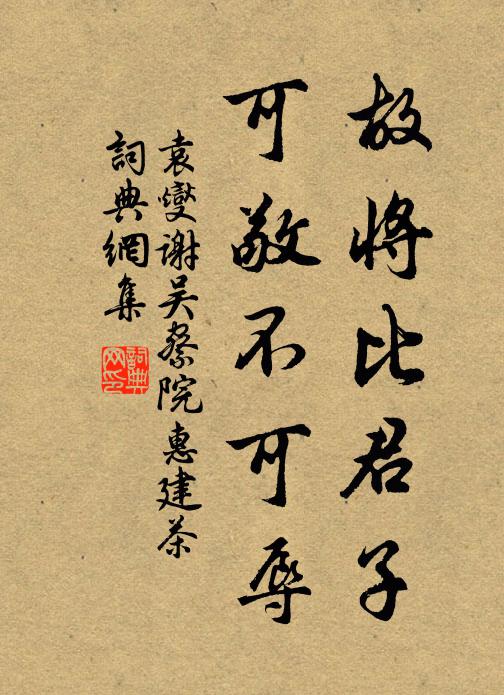 故將比君子
可敬不可辱
袁燮謝吴察院惠建茶
詞典網集
詞典网印